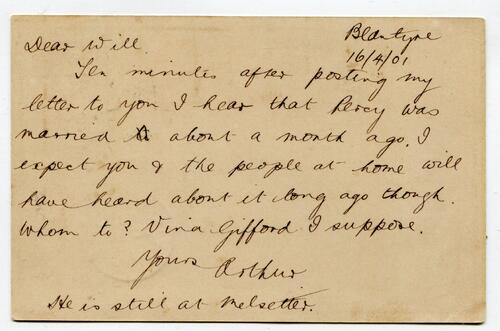 Blantyre
16/4/01
Dear Will.
Ten minutes after posting my
letter to you I hear that Percy was
married about a month ago. I
expect you & the people at home will
have heard about it long ago though.
Whom to? Vina Gifford I suppose.
Yours
Arthur
He is still at Melsetter.